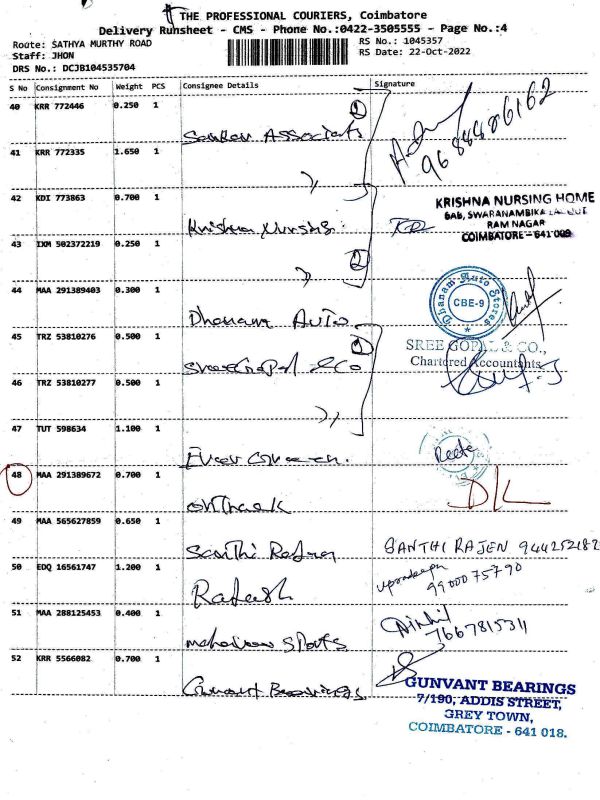 THE PROFESSIONAL COURIERS, Coimbatore
Delivery Runsheet - CMS - Phone No.:0422-3505555 - Page No.:4
Route: SATHYA MURTHY ROAD
Staff: JHON
DRS No.: DCJB104535704
RS No.: 1045357
RS Date: 22-Oct-2022
S No Consignment No Weight PCS Consignee Details Signature
40 KRR 772446 0.250 1
Associats
41 KRR 772335 1.650 1
42 KDI 773863 0.700 1
Krishna Nursing
KRISHNA NURSING HOME
RAM NAGAR
COIMBATORE - 641 009
43 IXM 502372219 0.250 1
44 MAA 291389403 0.300 1
Dhanam Auto
Dhanam Auto Stores
CBE-9
45 TRZ 53810276 0.500 1
Sree Gopal & Co
SREE GOPAL & CO.,
Chartered Accountants
46 TRZ 53810277 0.500 1
47 TUT 598634 1.100 1
48 MAA 291389672 0.700 1
49 MAA 565627859 0.650 1
Santhi Rajen
SANTHI RAJEN
50 EDQ 16561747 1.200 1
Rajesh
9900075790
51 MAA 288125453 0.400 1
Sports
7667815311
52 KRR 5566082 0.700 1
Gunvant Bearings
GUNVANT BEARINGS
7/190, ADDIS STREET,
GREY TOWN,
COIMBATORE - 641 018.